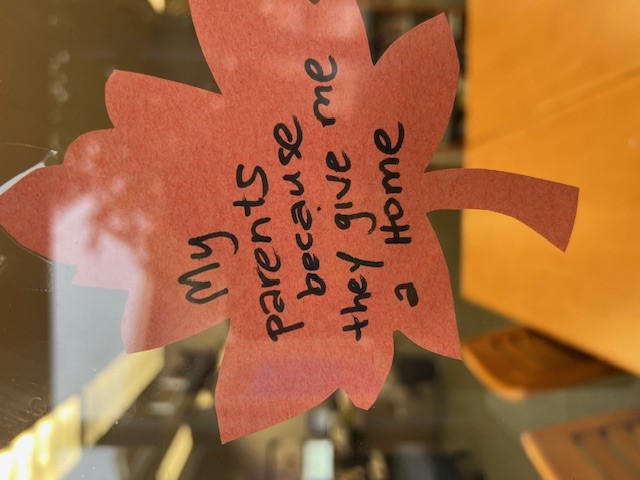 My
parents
because
they give me
a Home